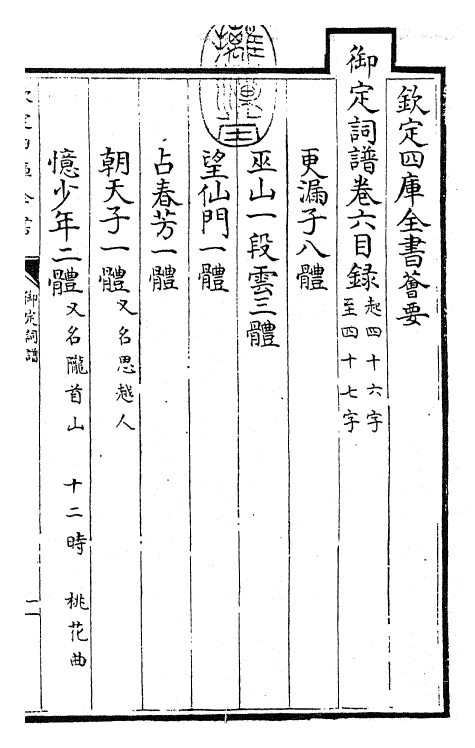 欽定四庫全書薈要
御定詞譜卷六目録 起四十六字至四十七字
更漏子八體
巫山一段雲三體
望仙門一體
占春芳一體
朝天子一體 又名思越人
憶少年二體 又名隴首山 十二時 桃花曲
御定詞譜
一